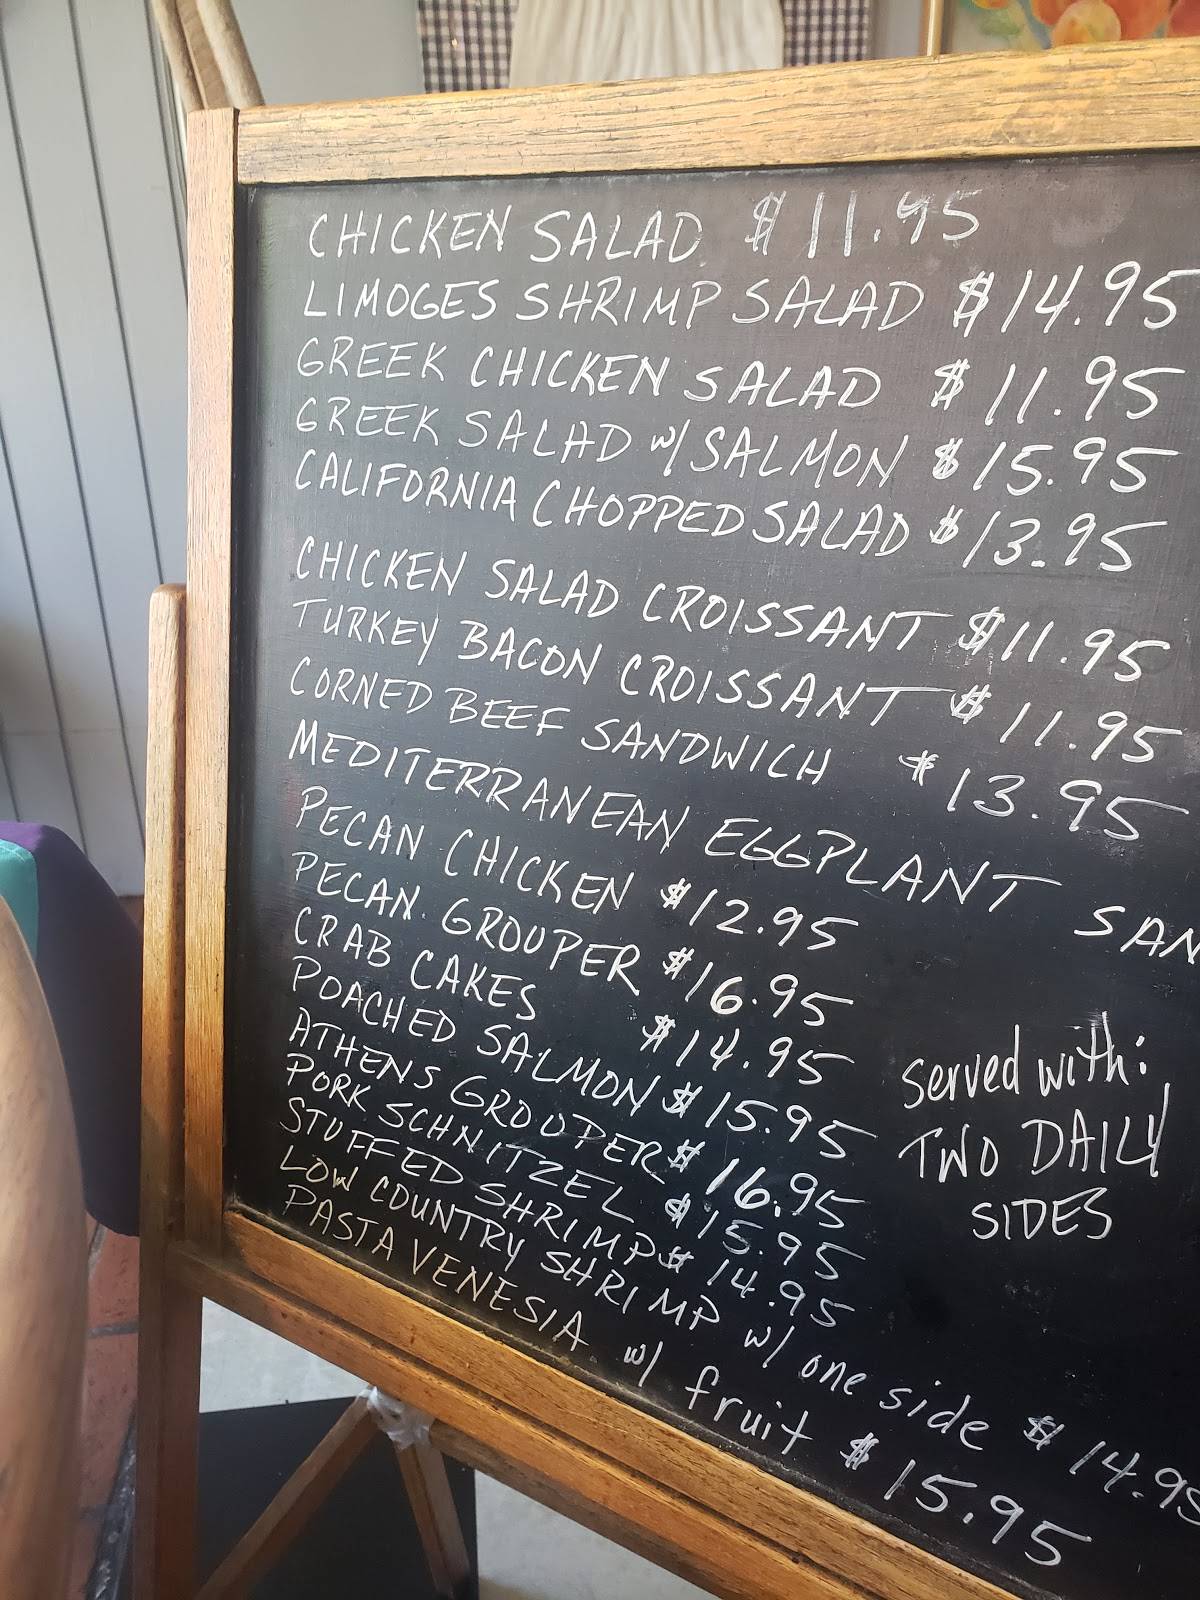 CHICKEN SALAD $11.95
LIMOGES SHRIMP SALAD $14.95
GREEK CHICKEN SALAD $11.95
GREEK SALAD w/ SALMON $15.95
CALIFORNIA CHOPPED SALAD $13.95
CHICKEN SALAD CROISSANT $11.95
TURKEY BACON CROISSANT $11.95
CORNED BEEF SANDWICH $13.95
MEDITERRANEAN EGGPLANT SAN
PECAN CHICKEN $12.95
PECAN GROUPER $16.95
CRAB CAKES $14.95
POACHED SALMON $15.95
ATHENS GROUPER $16.95
PORK SCHNITZEL $15.95
STUFFED SHRIMP $14.95
LOW COUNTRY SHRIMP w/ one side $14.95
PASTA VENESIA w/ fruit $15.95
served with:
TWO DAILY
SIDES